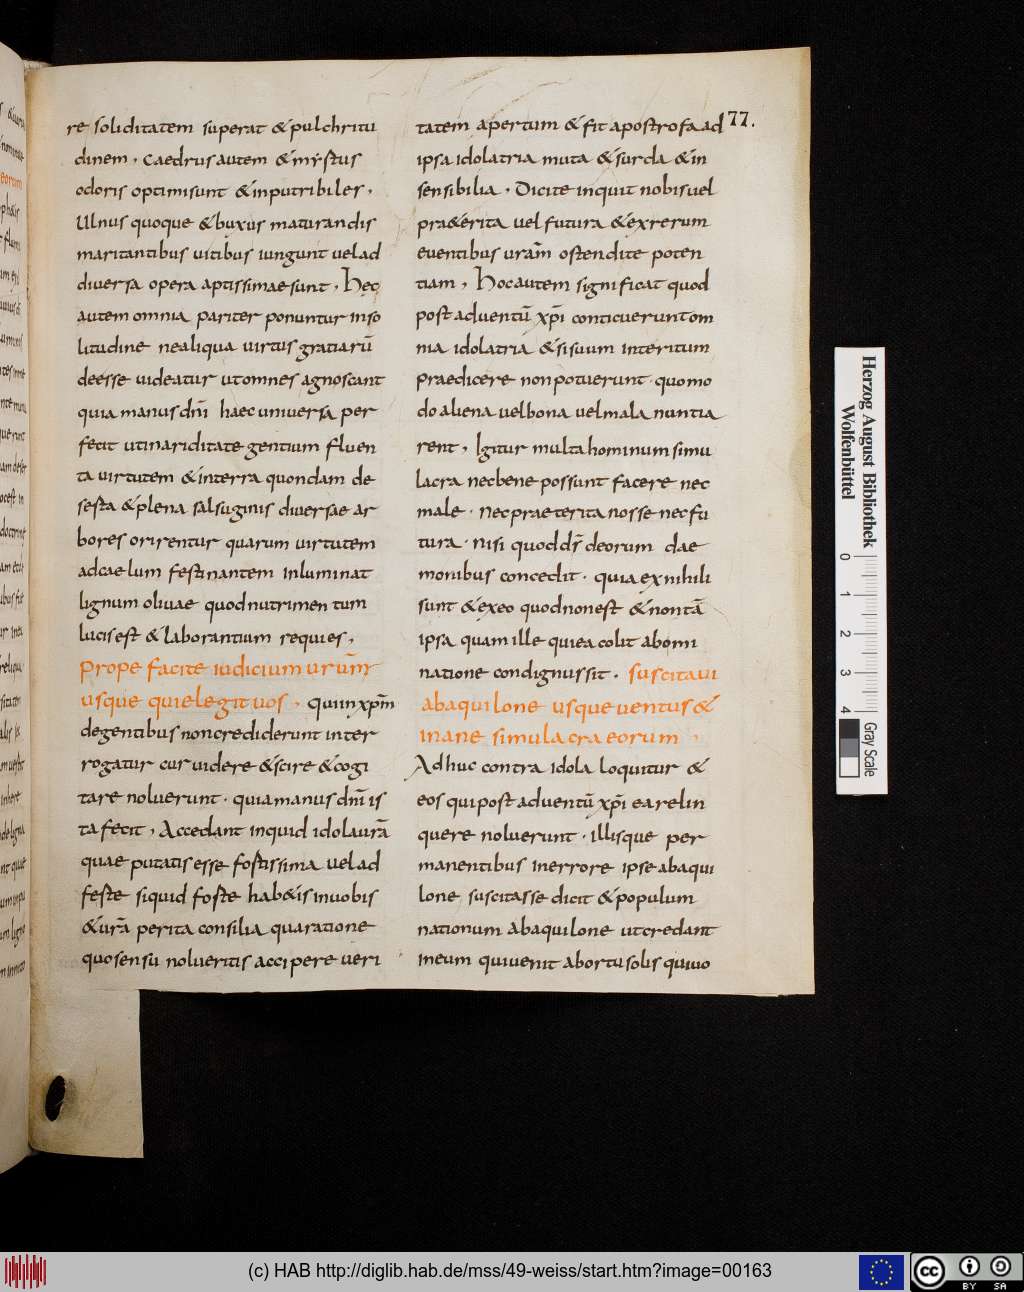 re soliditatem superat & pulchritu
dinem, caedrus autem & myrtus
odoris optimi sunt & inputribiles,
Ulnus quoque & buxus maturandis
maritantibus vitibus iungunt vel ad
diversa opera aptissimae sunt, Hęc
autem omnia pariter ponuntur in so
litudine ne aliqua virtus gratiarū
deesse videatur ut omnes agnoscant
quia manus dn̄i haec universa per
fecit ut in ariditate gentium fluen
ta virtutem & in terra quondam de
serta & plena salsuginis diversae ar
bores orirentur quarum virtutem
ad caelum festinantem inluminat
lignum olivae quod nutrimentum
lucis est & laborantium requies,
Prope facite iudicium vrūm
usque qui elegit vos, qui in xp̄m
degentibus non crediderunt inter
rogatur cur videre & scire & cogi
tare noluerunt. quia manus dn̄i is
ta fecit, Accedant inquid idola urā
quae putatis esse fortissima vel ad
ferte siquid forte hab&is in vobis
& urā perita consilia qua ratione
quo sensu nolueritis accipere veri
tatem apertum & fit apostrofa ad
ipsa idolatria muta & surda & in
sensibilia, Dicite inquit nobis vel
pra&erita vel futura & exrerum
eventibus uram̄ ostendite poten
tiam, Hoc autem significat quod
post adventū xp̄i conticuerunt om
nia idolatria & si suum interitum
praedicere non potuerunt. quomo
do aliena vel bona vel mala nuntia
rent, Igitur multa hominum simu
lacra nec bene possunt facere nec
male. nec praeterita nosse nec fu
tura. nisi quod dr̄ deorum dae
monibus concedit. quia ex nihili
sunt & ex eo quod non est & non tā
ipsa quam ille qui ea colit abomi
natione condignus sit. suscitavi
ab aquilone usque ventus &
inane simulacra eorum,
Adhuc contra idola loquitur &
eos qui post adventū xp̄i ea relin
quere noluerunt. illisque per
manentibus in errore ipse ab aqui
lone suscitasse dicit & populum
nationum ab aquilone ut credant
in eum qui venit ab ortu solis qui vo
77.
Herzog August Bibliothek
Wolfenbüttel
0 1 2 3 4
Gray Scale
(c) HAB http://diglib.hab.de/mss/49-weiss/start.htm?image=00163
CC BY SA